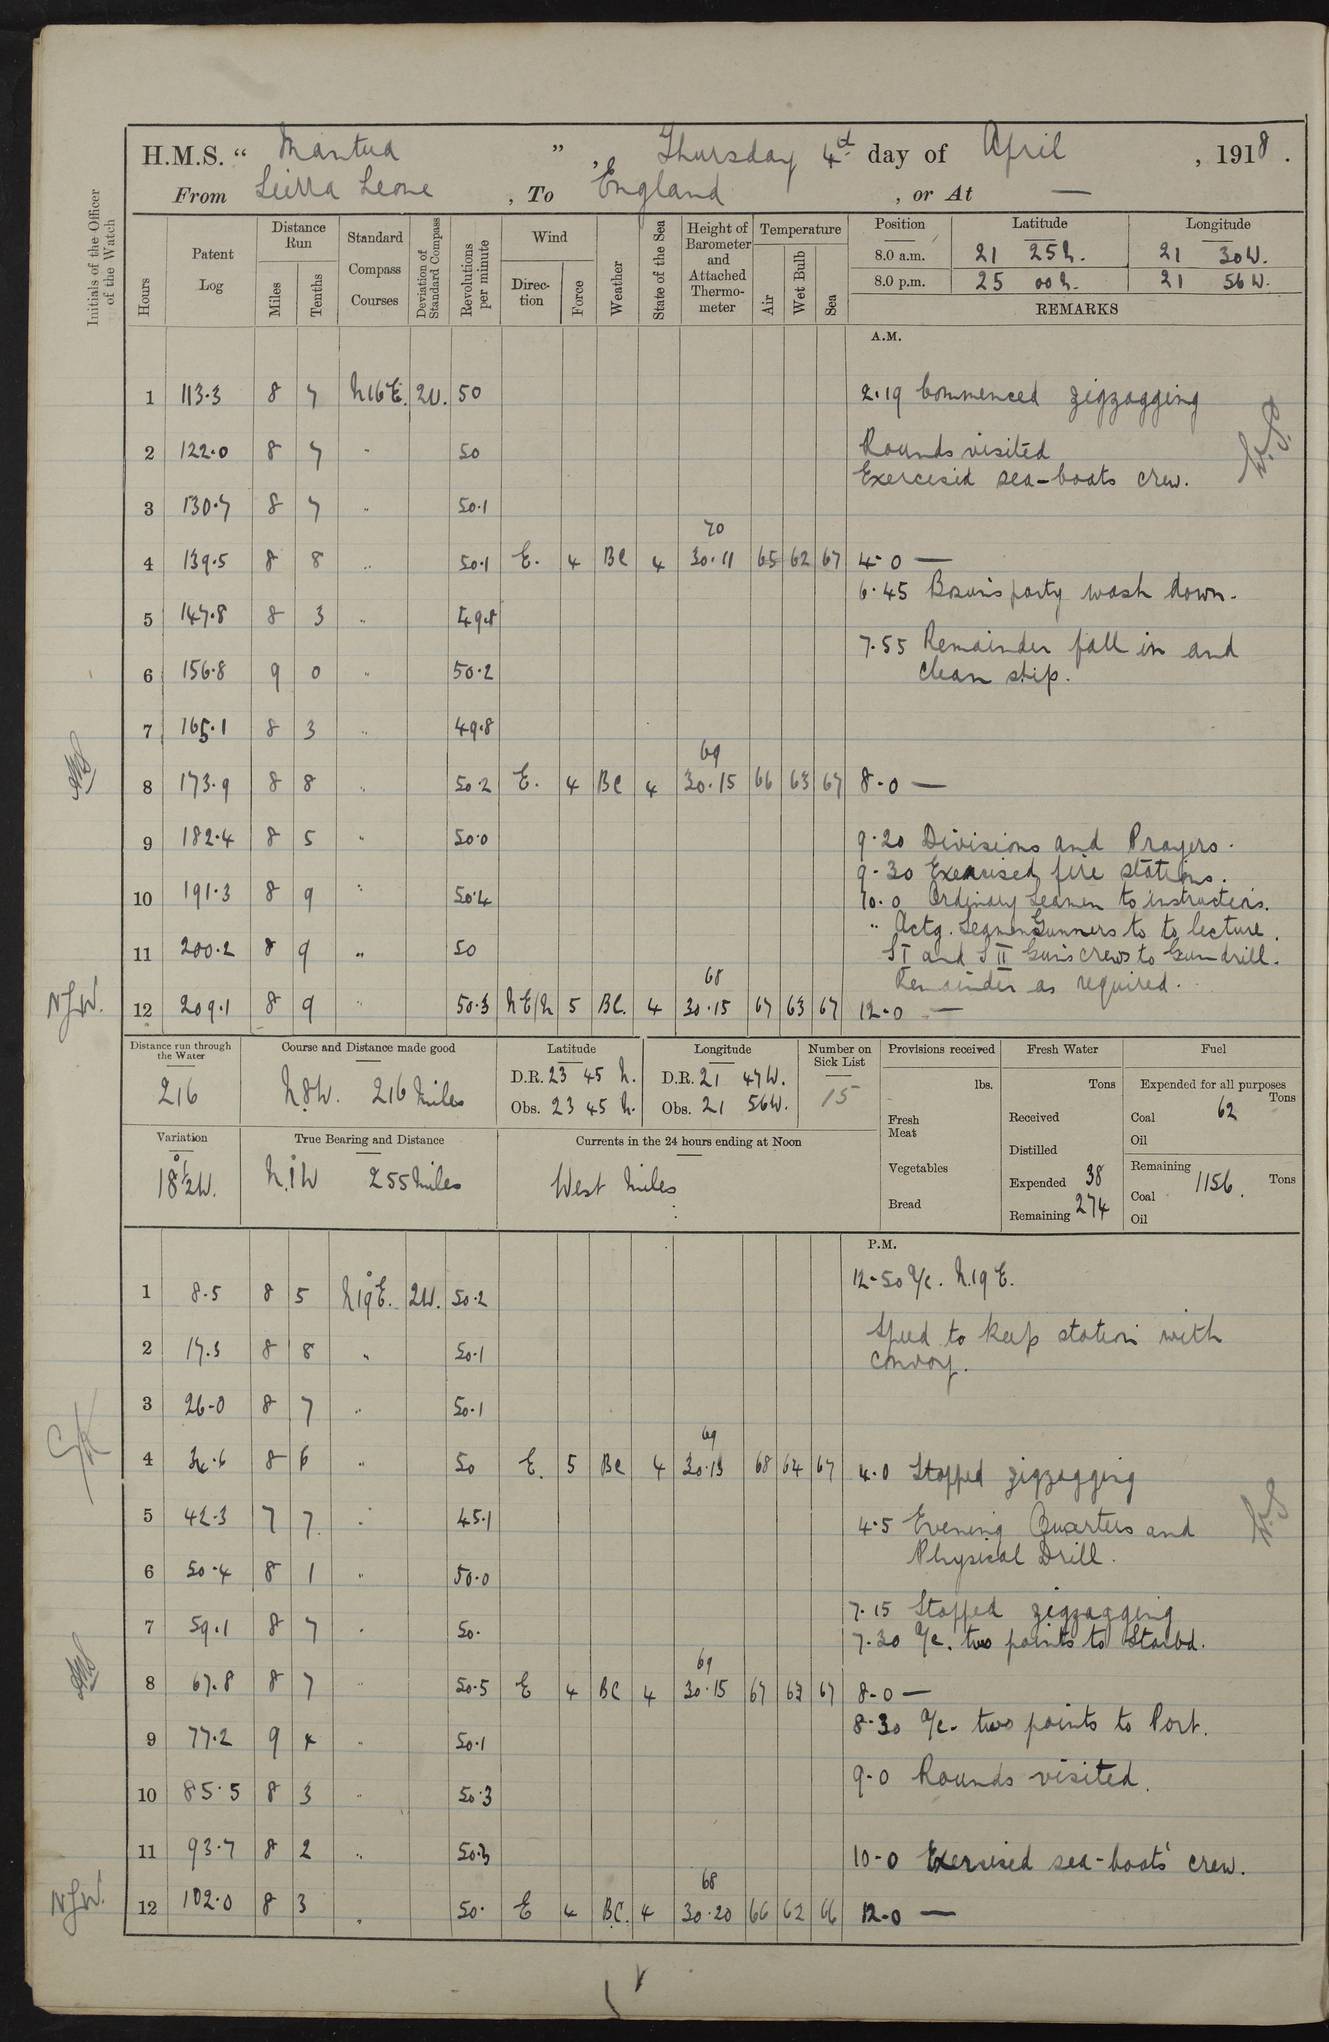 H.M.S. " Mantua " , Thursday 4th day of April , 1918 .
From Seirra Leone , To England , or At —
Initials of the Officer of the Watch
Hours
Patent Log
Distance Run
Miles
Tenths
Standard Compass Courses
Deviation of Standard Compass
Revolutions per minute
Wind
Direction
Force
Weather
State of the Sea
Height of Barometer and Attached Thermometer
Temperature
Air
Wet Bulb
Sea
Position Latitude Longitude
8.0 a.m. 21 25 N. 21 30 W.
8.0 p.m. 25 00 N. 21 56 W.
REMARKS
A.M.
1 113.3 8 7 N16E. 2W. 50 2.19 Commenced zigzagging
2 122.0 8 7 " 50 Rounds visited
Exercised sea-boats crew.
W.S.
3 130.7 8 7 " 50.1
70
4 139.5 8 8 " 50.1 E. 4 BC 4 30.11 65 62 67 4-0 —
6.45 Bosun's party wash down.
5 147.8 8 3 " 49.8
7.55 Remainder fall in and
6 156.8 9 0 " 50.2 clean ship.
7 165.1 8 3 " 49.8
69
8 173.9 8 8 " 50.2 E. 4 BC 4 30.15 66 63 67 8-0 —
9 182.4 8 5 " 50.0 9.20 Divisions and Prayers.
9.30 Exercised fire stations.
10 191.3 8 9 " 50.4 10.0 Ordinary Seamen to instructions.
" Actg. Seamen Gunners to to lecture.
11 200.2 8 9 " 50 SI and SII Guns crews to Gun drill.
68 Remainder as required.
N.J.W. 12 209.1 8 9 " 50.3 NE/N 5 BC. 4 30.15 67 63 67 12-0 —
Distance run through the Water
216
Course and Distance made good
N.8W. 216 Miles
Latitude
D.R. 23 45 N.
Obs. 23 45 N.
Longitude
D.R. 21 47 W.
Obs. 21 56 W.
Number on Sick List
15
Provisions received
lbs.
Fresh Meat
Vegetables
Bread
Fresh Water
Tons
Received
Distilled
Expended 38
Remaining 274
Fuel
Expended for all purposes
Tons
Coal 62
Oil
Remaining
Tons
Coal 1156.
Oil
Variation
18½W.
True Bearing and Distance
N.1°W 255 Miles
Currents in the 24 hours ending at Noon
West Miles
P.M.
12-50 a/c. N.19E.
1 8.5 8 5 N19°E. 2W. 50.2
Speed to keep station with
2 17.3 8 8 " 50.1 convoy.
3 26.0 8 7 " 50.1
69
4 34.6 8 6 " 50 E. 5 BC 4 30.13 68 64 67 4.0 Stopped zigzagging
5 42.3 7 7 " 45.1 4.5 Evening Quarters and
Physical Drill.
W.S
6 50.4 8 1 " 50.0
7.15 Stopped zigzagging
7 59.1 8 7 " 50. 7.30 a/c. two points to Starbd.
69
8 67.8 8 7 " 50.5 E 4 BC 4 30.15 67 63 67 8-0 —
8-30 a/c. two points to Port.
9 77.2 9 4 " 50.1
9-0 Rounds visited.
10 85.5 8 3 " 50.3
11 93.7 8 2 " 50.3 10-0 Exersised sea-boats' crew.
68
N.J.W. 12 102.0 8 3 " 50. E 4 BC. 4 30.20 66 62 66 12-0 —